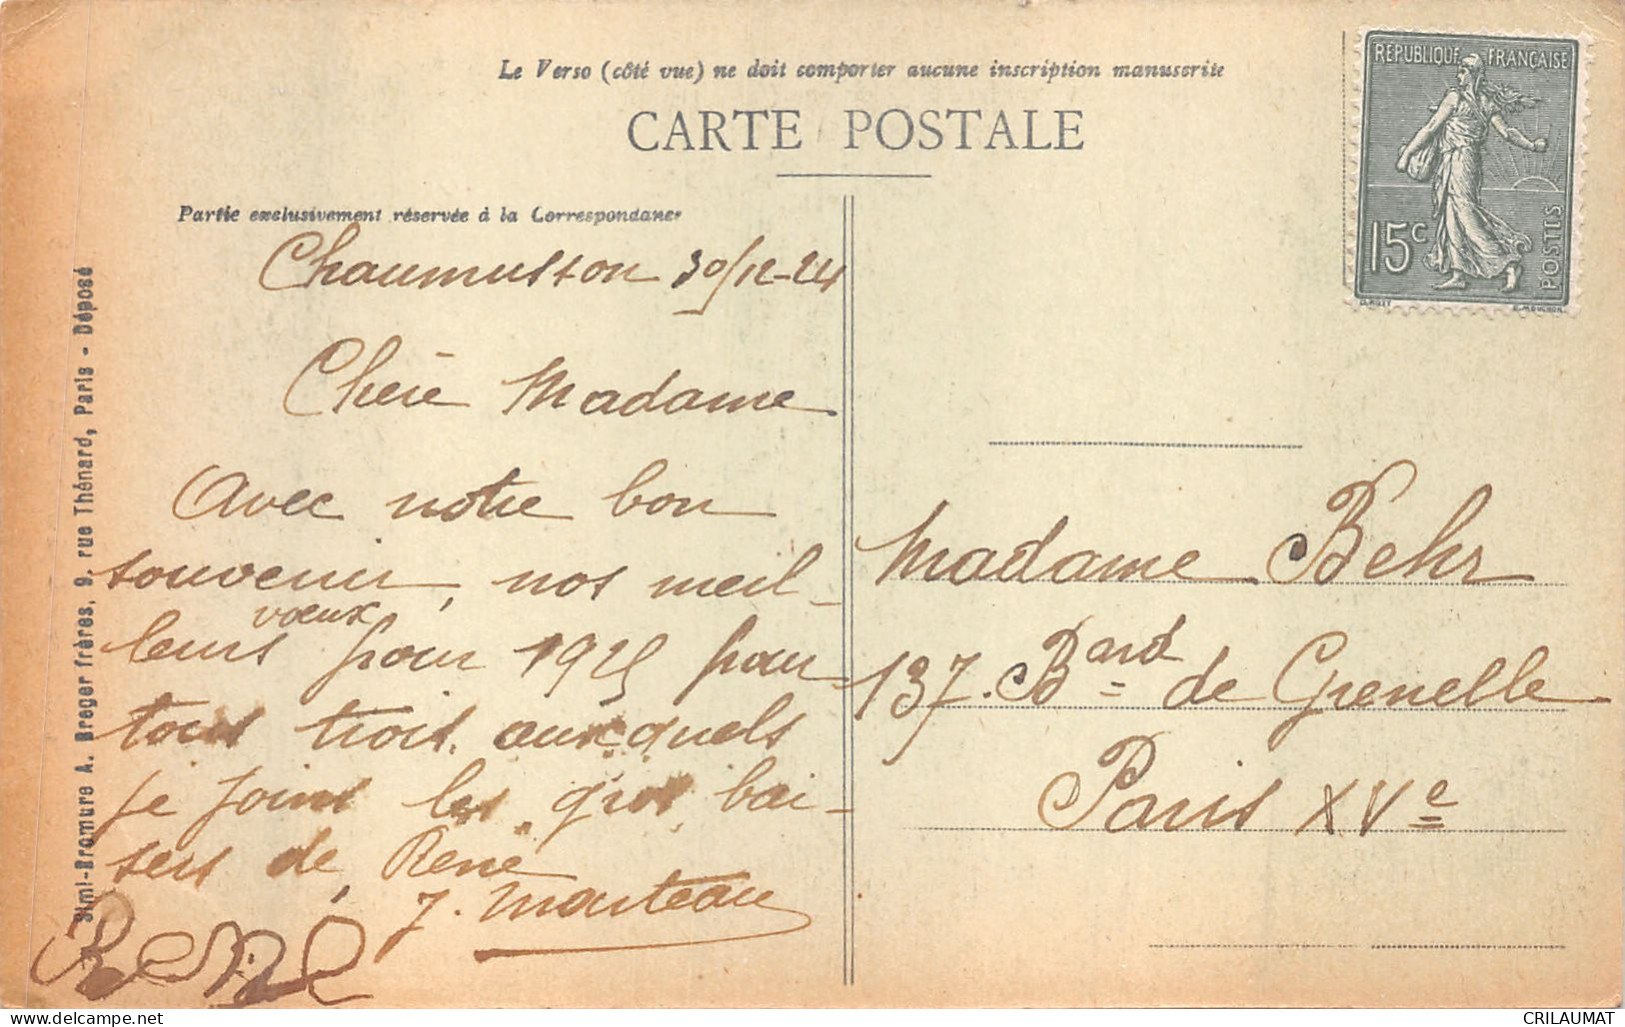 Le Verso (côté vue) ne doit comporter aucune inscription manuscrite
CARTE POSTALE
RÉPUBLIQUE FRANÇAISE
15c
POSTES
Partie exclusivement réservée à la Correspondance
Chaumusson 30/12-24
Chère Madame
Avec notre bon
souvenir, nos meil-
vœux
leurs pour 1925 pour
tous trois auxquels
je joins les gros bai-
sers de René
J. Monteau
René
Madame Behr
137. Bard de Grenelle
Paris XVe
Simi-Bromure A. Breger frères, 9, rue Thénard, Paris - Déposé
CRILAUMAT